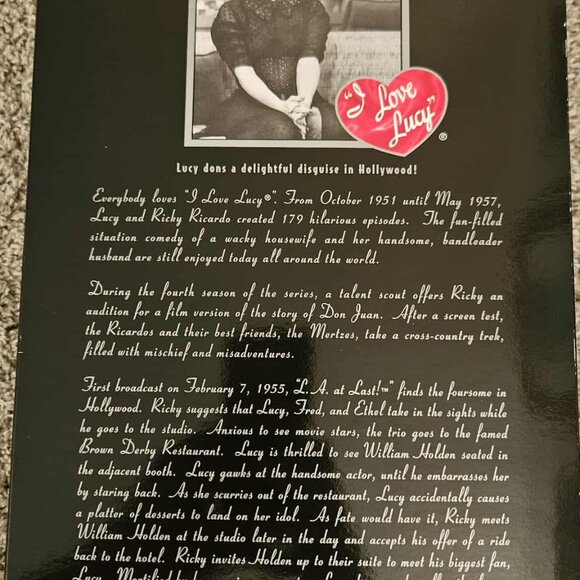 "I Love
Lucy"
®
Lucy dons a delightful disguise in Hollywood!
Everybody loves "I Love Lucy®". From October 1951 until May 1957,
Lucy and Ricky Ricardo created 179 hilarious episodes. The fun-filled
situation comedy of a wacky housewife and her handsome, bandleader
husband are still enjoyed today all around the world.
During the fourth season of the series, a talent scout offers Ricky an
audition for a film version of the story of Don Juan. After a screen test,
the Ricardos and their best friends, the Mertzes, take a cross-country trek,
filled with mischief and misadventures.
First broadcast on February 7, 1955, "L.A. at Last!™" finds the foursome in
Hollywood. Ricky suggests that Lucy, Fred, and Ethel take in the sights while
he goes to the studio. Anxious to see movie stars, the trio goes to the famed
Brown Derby Restaurant. Lucy is thrilled to see William Holden seated in
the adjacent booth. Lucy gawks at the handsome actor, until he embarrasses her
by staring back. As she scurries out of the restaurant, Lucy accidentally causes
a platter of desserts to land on her idol. As fate would have it, Ricky meets
William Holden at the studio later in the day and accepts his offer of a ride
back to the hotel. Ricky invites Holden up to their suite to meet his biggest fan,
Lucy. Mortified